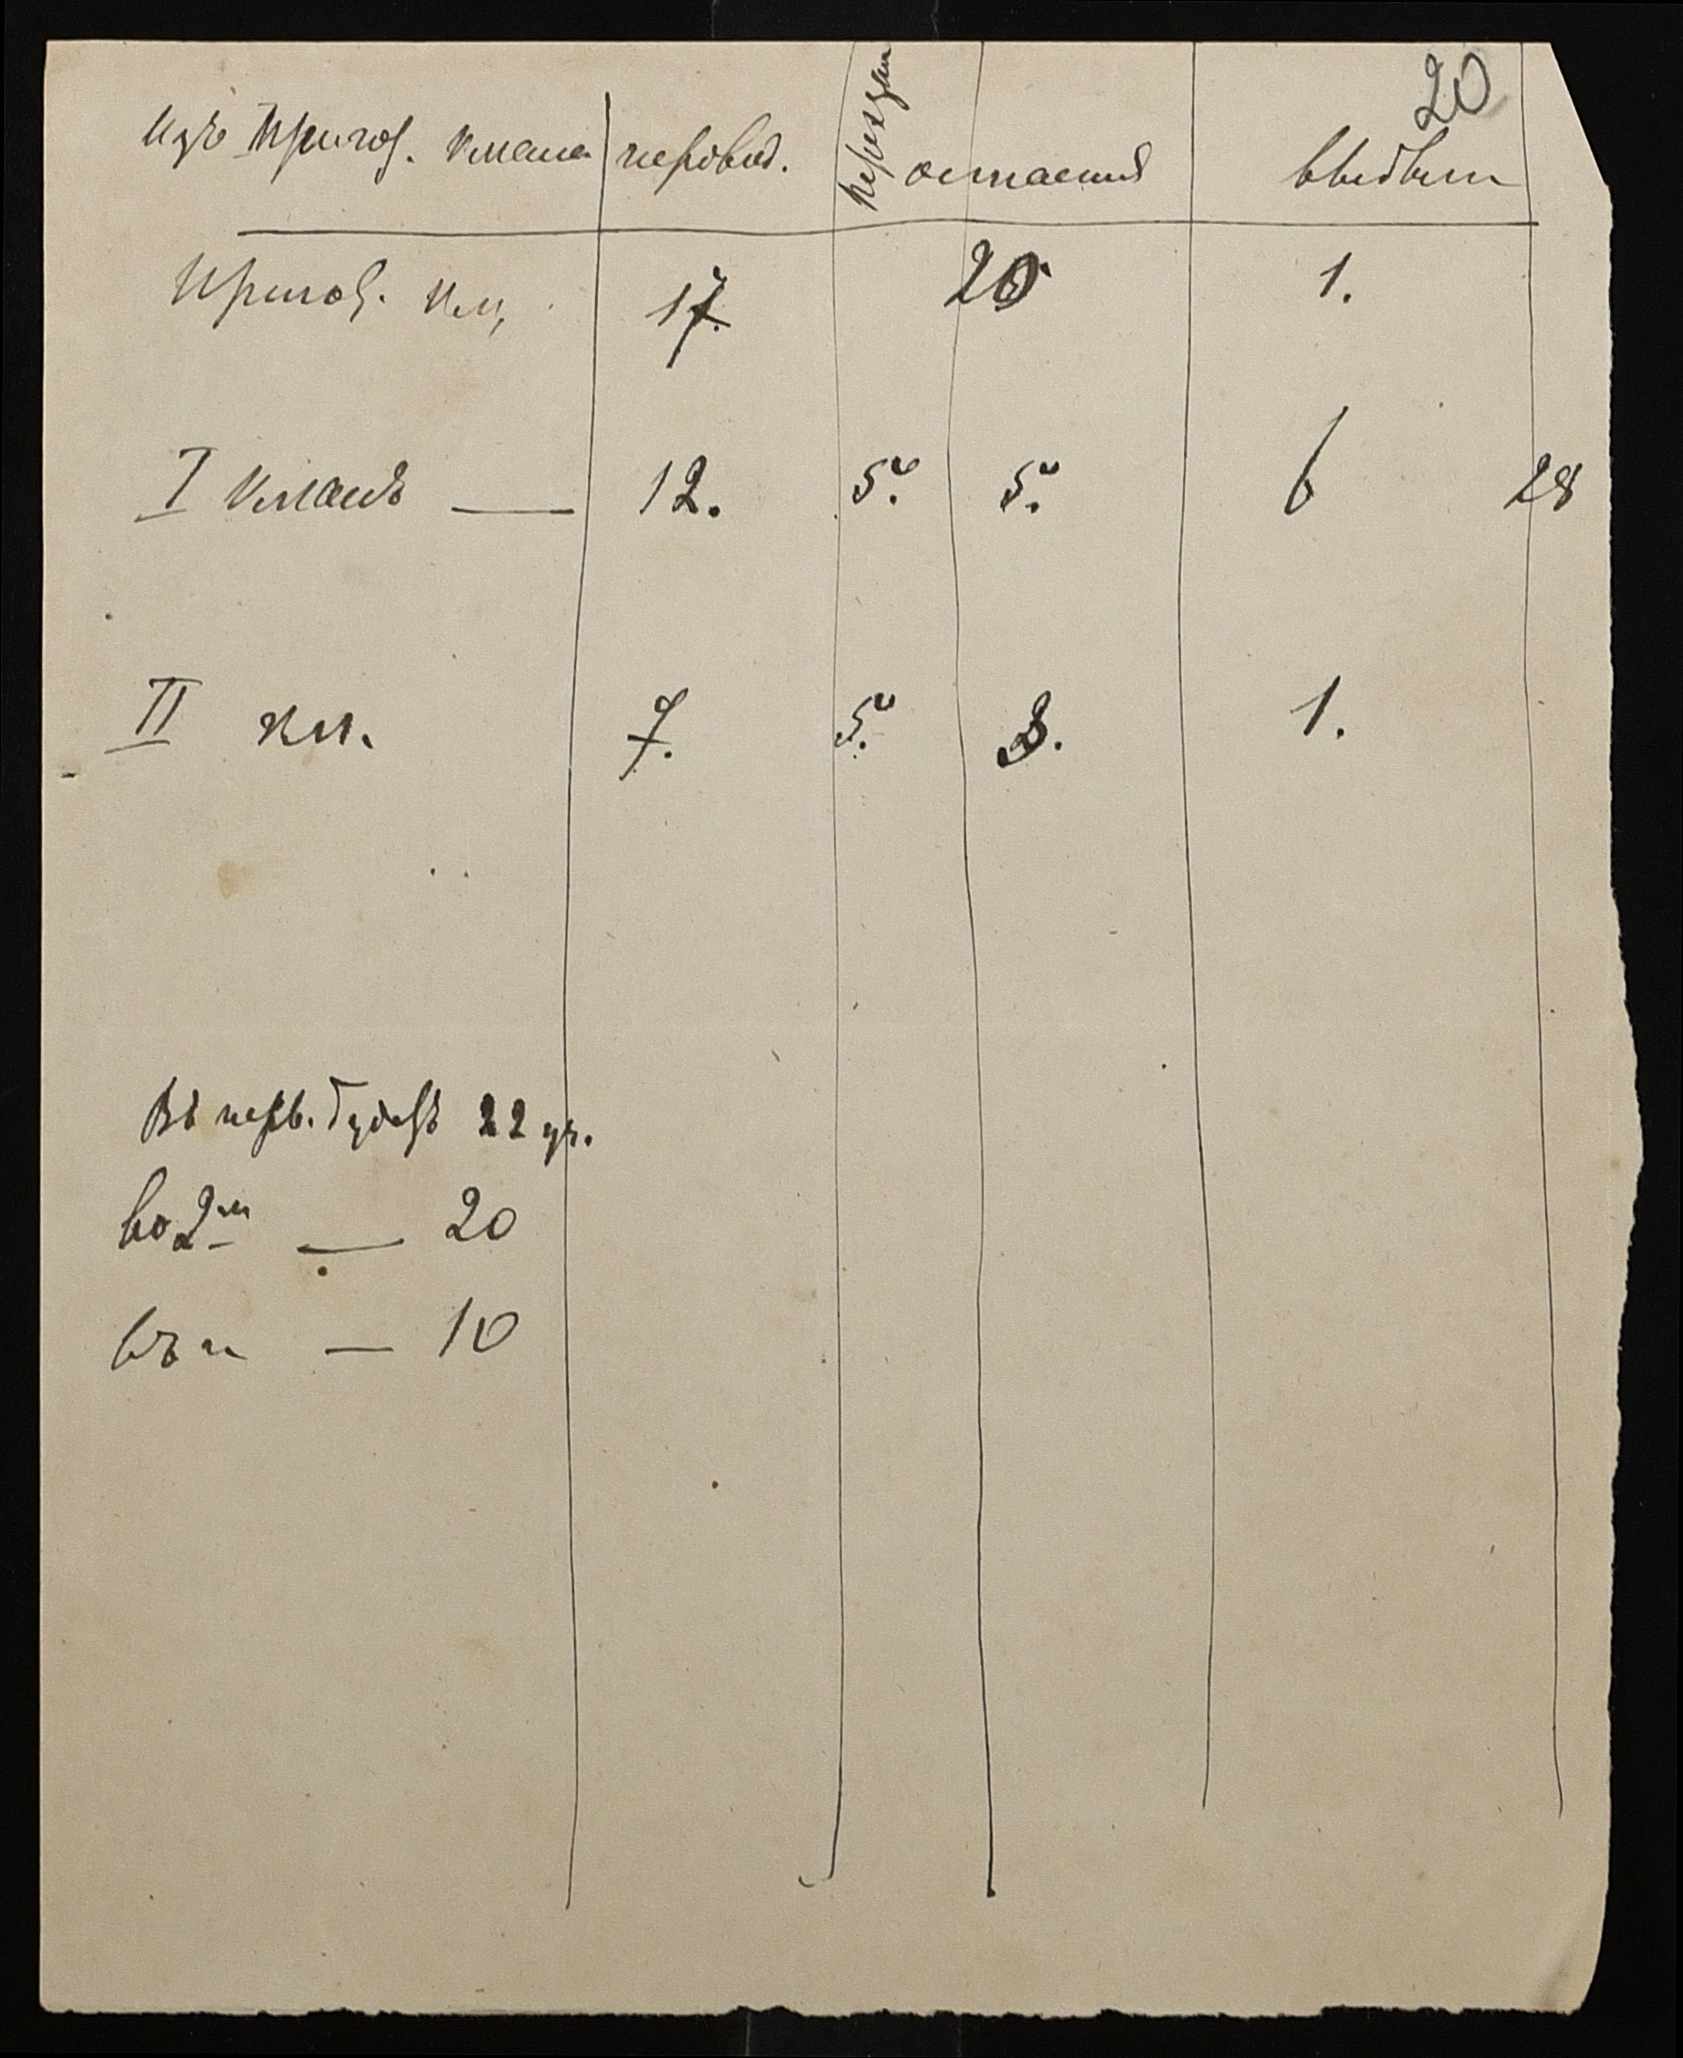 20
Изъ Пригот. класса перевод. переэкз. остаются выбыли
Пригот. кл. 17. 20 1.
I классъ — 12. 5. 5. 6 28
II кл. 7. 5. 3. 1.
Въ перв. будетъ 22 уч.
во 2м — 20
въ — 10